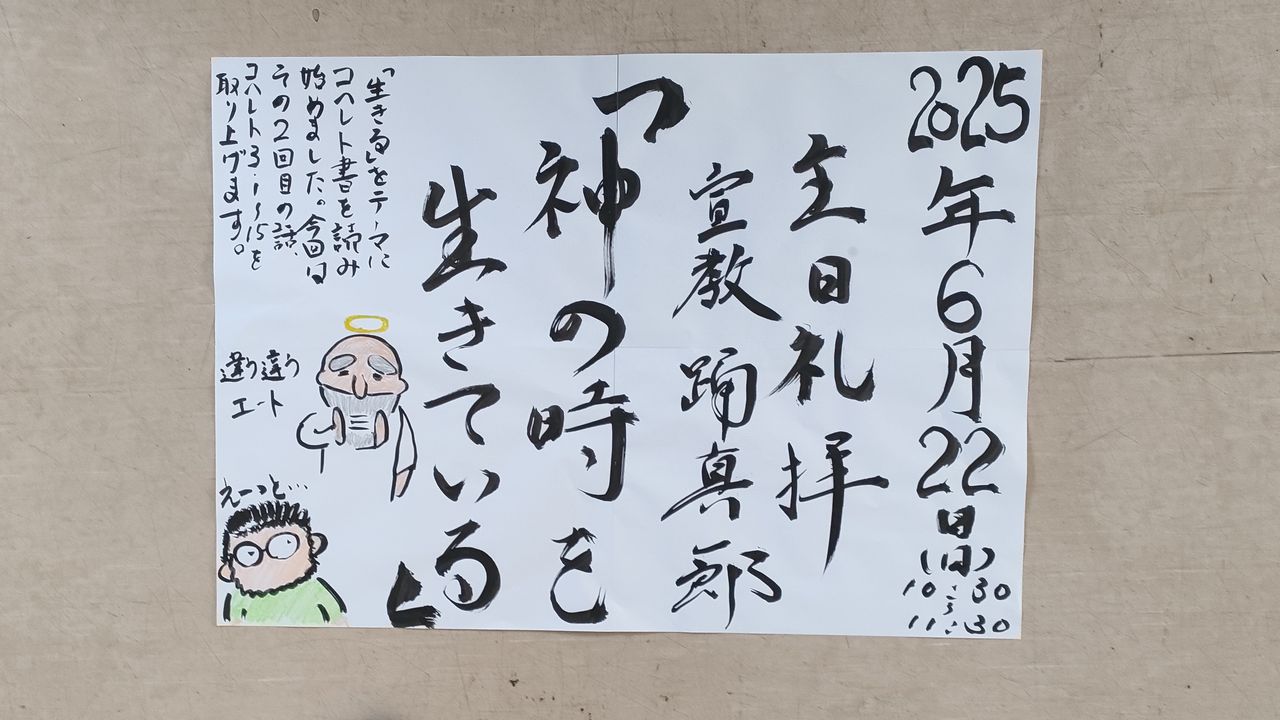 2025年6月22日(日)
10:30
〜
11:30
主日礼拝
宣教 踊真一郎
「神の時を
生きている」
「生きる」をテーマに
コヘレト書を読み
始めました。今回は
その2回目の話、
コヘレト3・1〜15を
取り上げます。
違う違う
エート
えーっと…